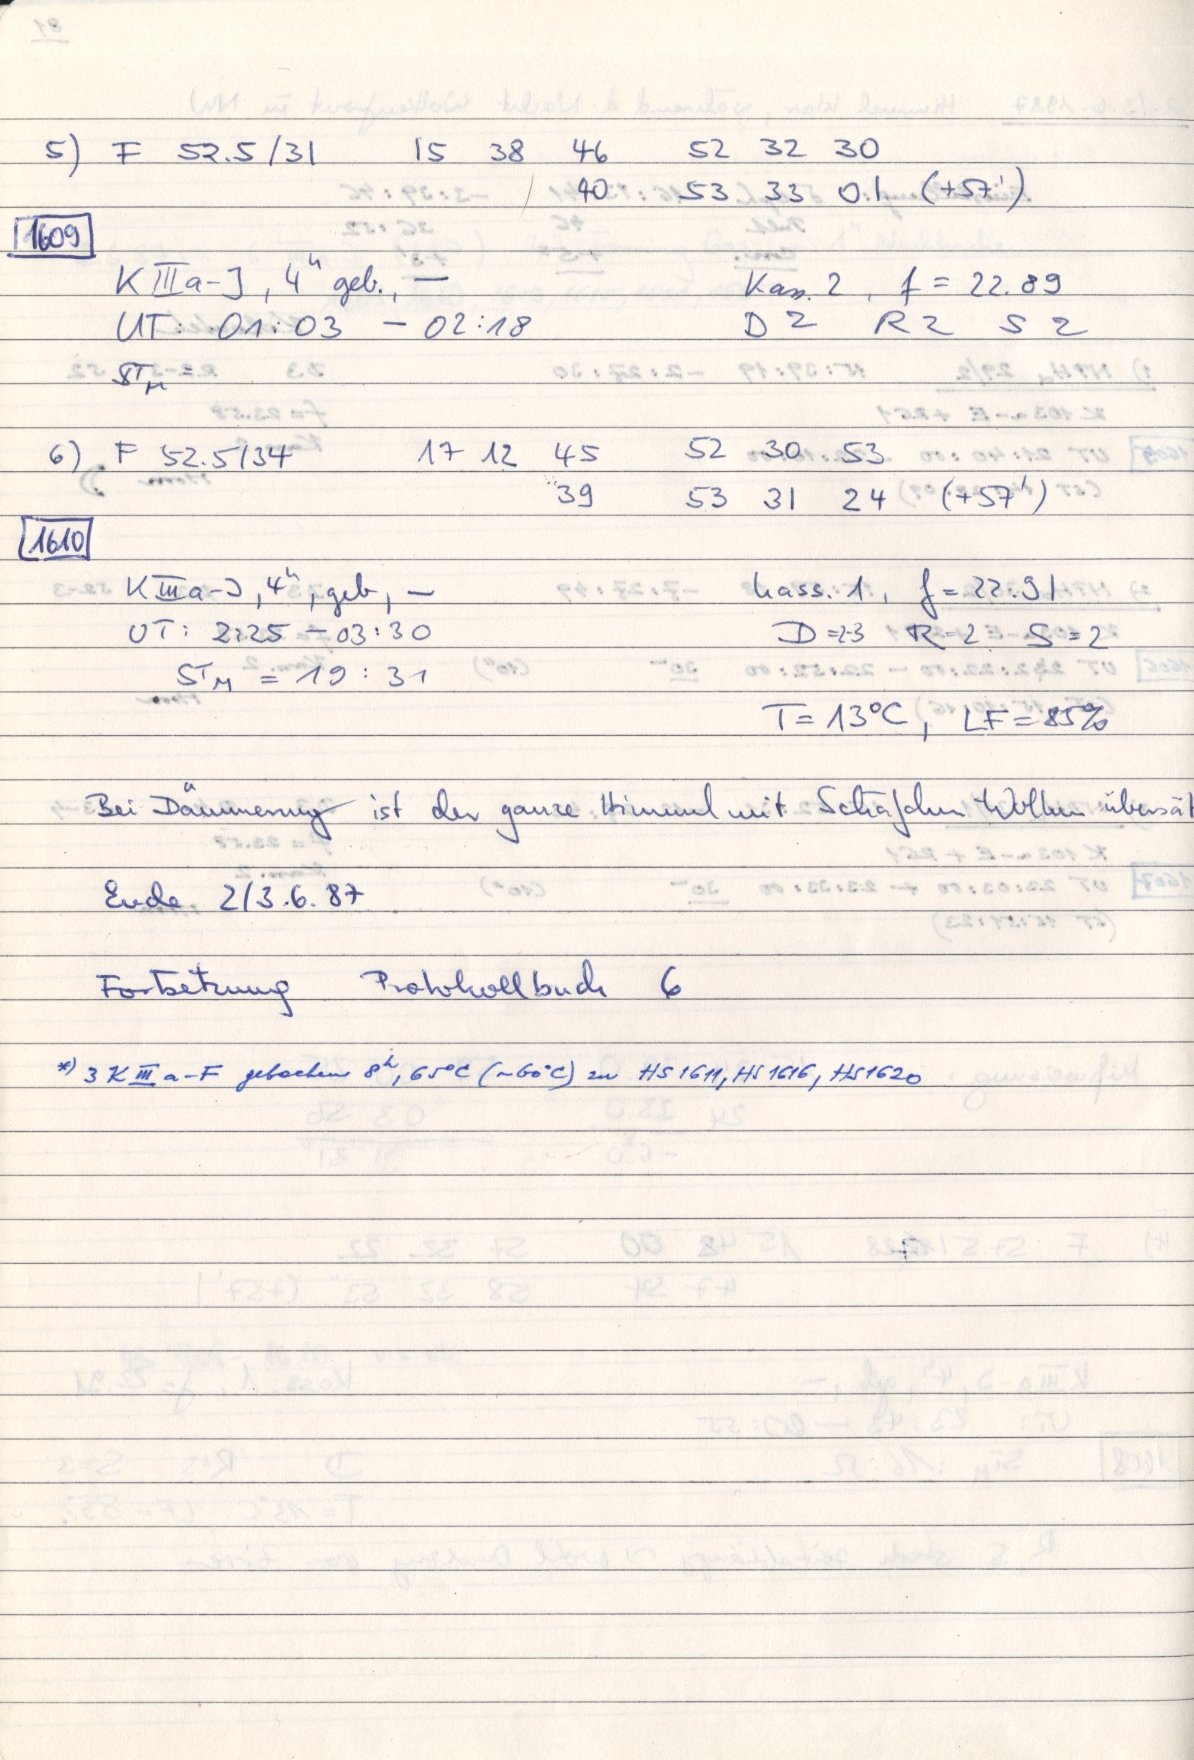 5) F 52.5/31 15 38 46 52 32 30
40 53 33 01 (+57')
1609
K IIIa-J, 4h geb., — Kass. 2, f = 22.89
UT: 01:03 – 02:18 D 2 R 2 S 2
STM =
6) F 52.5/34 17 12 45 52 30 53
39 53 31 24 (+57')
1610
K IIIa-J, 4h, geb, — Kass. 1, f = 22.91
UT: 2:25 – 03:30 D=2-3 R=2 S=2
STM = 19:31
T = 13°C, LF = 85%
Bei Dämmerung ist der ganze Himmel mit Schäfchen Wolken übersät
Ende 2/3.6.87
Fortsetzung Protokollbuch 6
*) 3 K IIIa-F gebacken 8h, 65°C (~60°C) zu HS1611, HS1616, HS1620